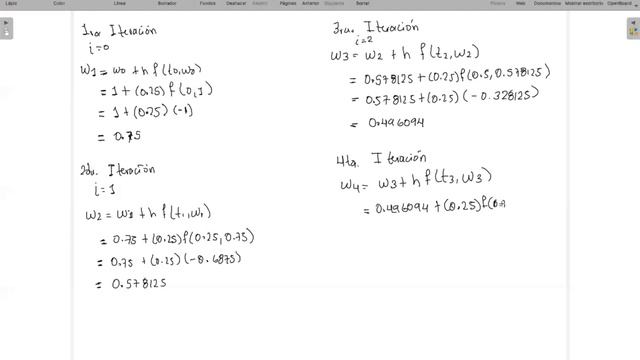 Lápiz
Color
Línea
Borrador
Fondos
Deshacer
Rehacer
Páginas
Anterior
Siguiente
Borrar
Pizarra
Web
Documentos
Mostrar escritorio
OpenBoard
1ra Iteración
i=0
w1 = w0 + h f(t0,w0)
= 1 + (0.25) f(0,1)
= 1 + (0.25) (-1)
= 0.75
2da. Iteración
i = 1
w2 = w1 + h f(t1,w1)
= 0.75 + (0.25) f(0.25, 0.75)
= 0.75 + (0.25) (-0.6875)
= 0.578125
3ra. Iteración
i=2
w3 = w2 + h f(t2,w2)
= 0.578125 + (0.25) f(0.5, 0.578125)
= 0.578125 + (0.25) (-0.328125)
= 0.496094
4ta. Iteración
w4 = w3 + h f(t3,w3)
= 0.496094 + (0.25) f(0.